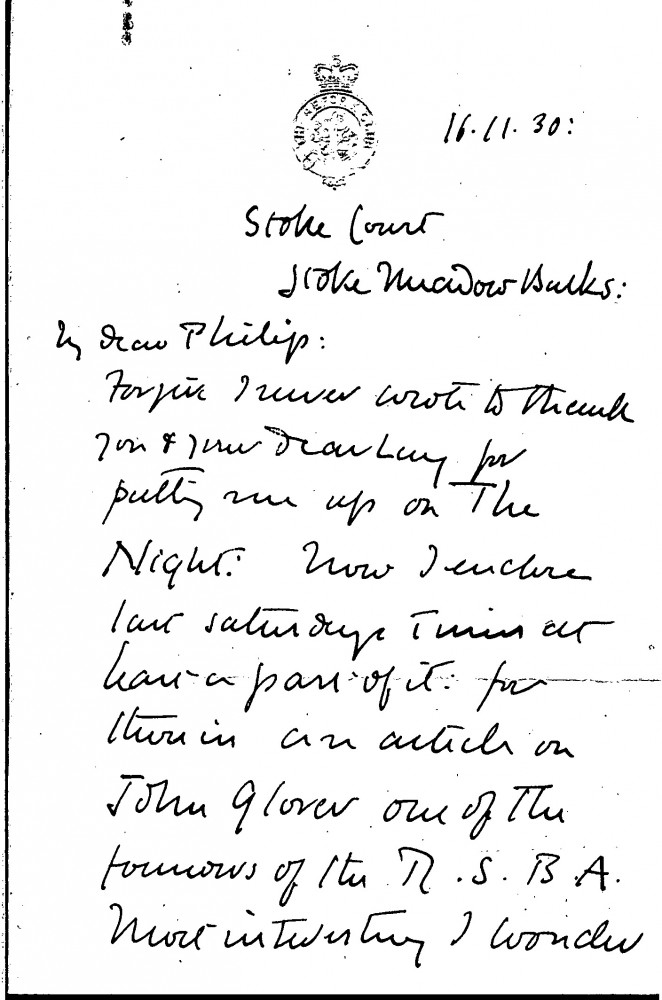 THE REFORM CLUB
16.11.30:
Stoke Court
Stoke Meadow Bucks:
My dear Philip:
Forgive I never wrote to thank
you & your dear Lucy for
putting me up on The
Night: Now I enclose
last saturdays Times at
least a part of it: for
therein an article on
John Glover one of the
founders of the R.S.B.A.
Most interesting I wonder